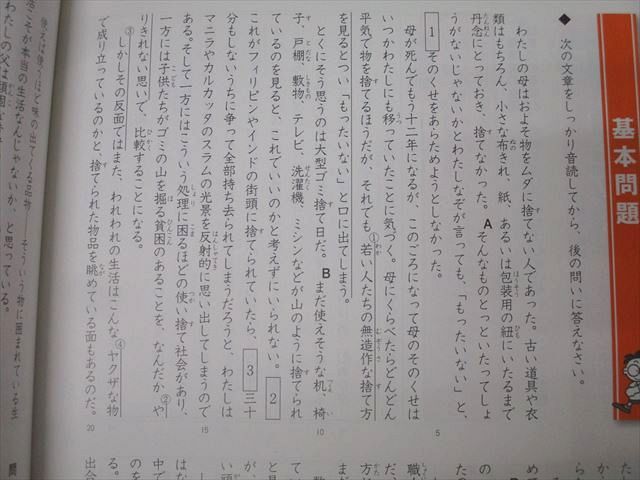 基本問題
◆ 次の文章をしっかり音読してから、後の問いに答えなさい。
わたしの母はおよそ物をムダに捨てない人であった。古い道具や衣
類はもちろん、小さな布きれ、紙、あるいは包装用の紐にいたるまで
丹念にとっておき、捨てなかった。 A そんなものとっといたってしょ
うがないじゃないかとわたしなぞが言っても、「もったいない」と、
1 そのくせをあらためようとしなかった。
母が死んでもう十二年になるが、このごろになって母のそのくせは
いつかわたしにも移っていたことに気づく。母にくらべたらどんどん
平気で物を捨てるほうだが、それでも①若い人たちの無造作な捨て方
を見るとつい「もったいない」と口に出てしまう。
とくにそう思うのは大型ゴミ捨て日だ。 B まだ使えそうな机、椅
子、戸棚、敷物、テレビ、洗濯機、ミシンなどが山のように捨てられ
ているのを見ると、これでいいのかと考えずにいられない。 2
これがフィリピンやインドの街頭に捨てられていたら、 3 三十
分もしないうちに争って全部持ち去られてしまうだろうと、わたしは
マニラやカルカッタのスラムの光景を反射的に思い出してしまうので
ある。そして一方にはこういう処理に困るほどの使い捨て社会があり、
一方には子供たちがゴミの山を掘る貧困のあることを、なんだか②や
りきれない思いで、比較することになる。
③しかしその反面ではまた、われわれの生活はこんな④ヤクザな物
で成り立っているのかと、捨てられた物品を眺めている面もあるのだ。
使えば使うほど味の出てくる品物――そういう物に囲まれている生
活こそが本当の生活なんじゃないか、と思っている。
5
10
15
20